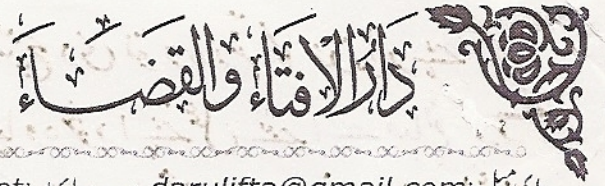 دَارُ الافتَاء والقضَاء
darulifta@gmail.com